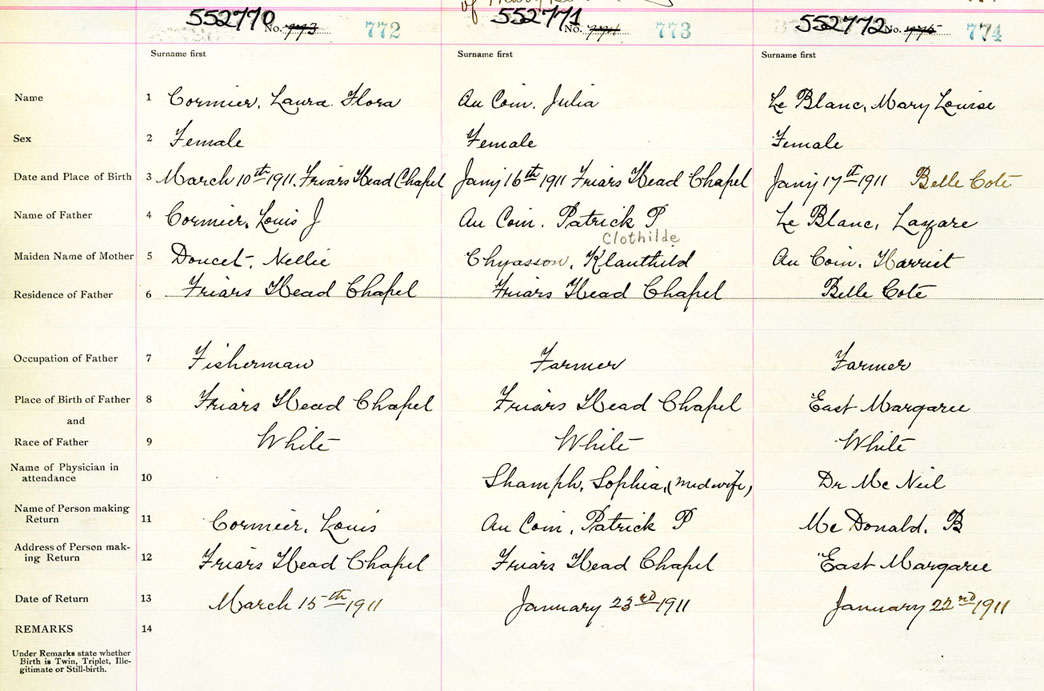 552770 No. 773 772 552771 No. 774 773 552772 No. 775 774
Surname first Surname first Surname first
Name 1 Cormier, Laura Flora Au Coin, Julia Le Blanc, Mary Louise
Sex 2 Female Female Female
Date and Place of Birth 3 March 10th 1911. Friars Head Chapel Jany 16th 1911 Friars Head Chapel Jany 17th 1911 Belle Cote
Name of Father 4 Cormier, Louis J Au Coin, Patrick P Le Blanc, Lazare
Clothilde
Maiden Name of Mother 5 Doucet, Nellie Chyasson, Klauthild Au Coin, Harriet
Residence of Father 6 Friars Head Chapel Friars Head Chapel Belle Cote
Occupation of Father 7 Fisherman Farmer Farmer
Place of Birth of Father 8 Friars Head Chapel Friars Head Chapel East Margaree
and
Race of Father 9 White White White
Name of Physician in
attendance 10 Shamph, Sophia, (midwife) Dr Mc Neil
Name of Person making
Return 11 Cormier, Louis Au Coin, Patrick P Mc Donald, B
Address of Person mak-
ing Return 12 Friars Head Chapel Friars Head Chapel East Margaree
Date of Return 13 March 15th 1911 January 23rd 1911 January 22nd 1911
REMARKS 14
Under Remarks state whether
Birth is Twin, Triplet, Ille-
gitimate or Still-birth.